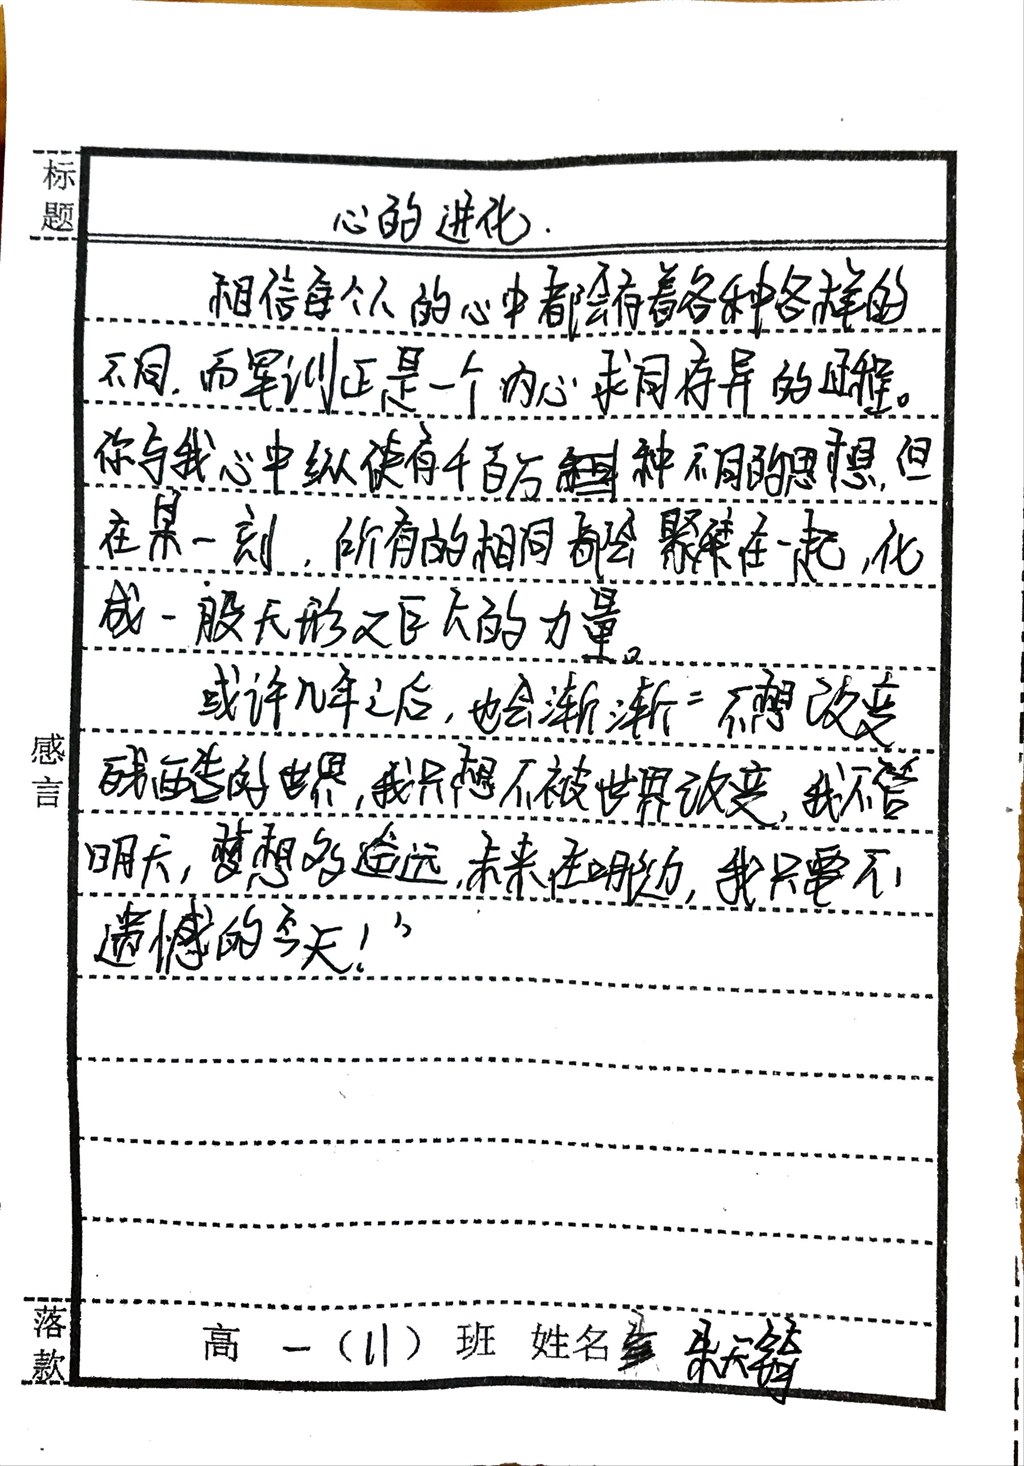 标题
心的进化.
相信每个人的心中都会有着各种各样的
不同.而军训正是一个内心求同存异的过程。
你与我心中纵使有千百万种不同的思想,但
在某一刻,所有的相同都会聚集在一起,化
成一股无形又巨大的力量。
或许几年之后,也会渐渐"不想改变
残酷的世界,我只想不被世界改变,我不管
明天,梦想多遥远,未来在哪边,我只要不
遗憾的今天!"
感言
落款
高一(11)班 姓名 天